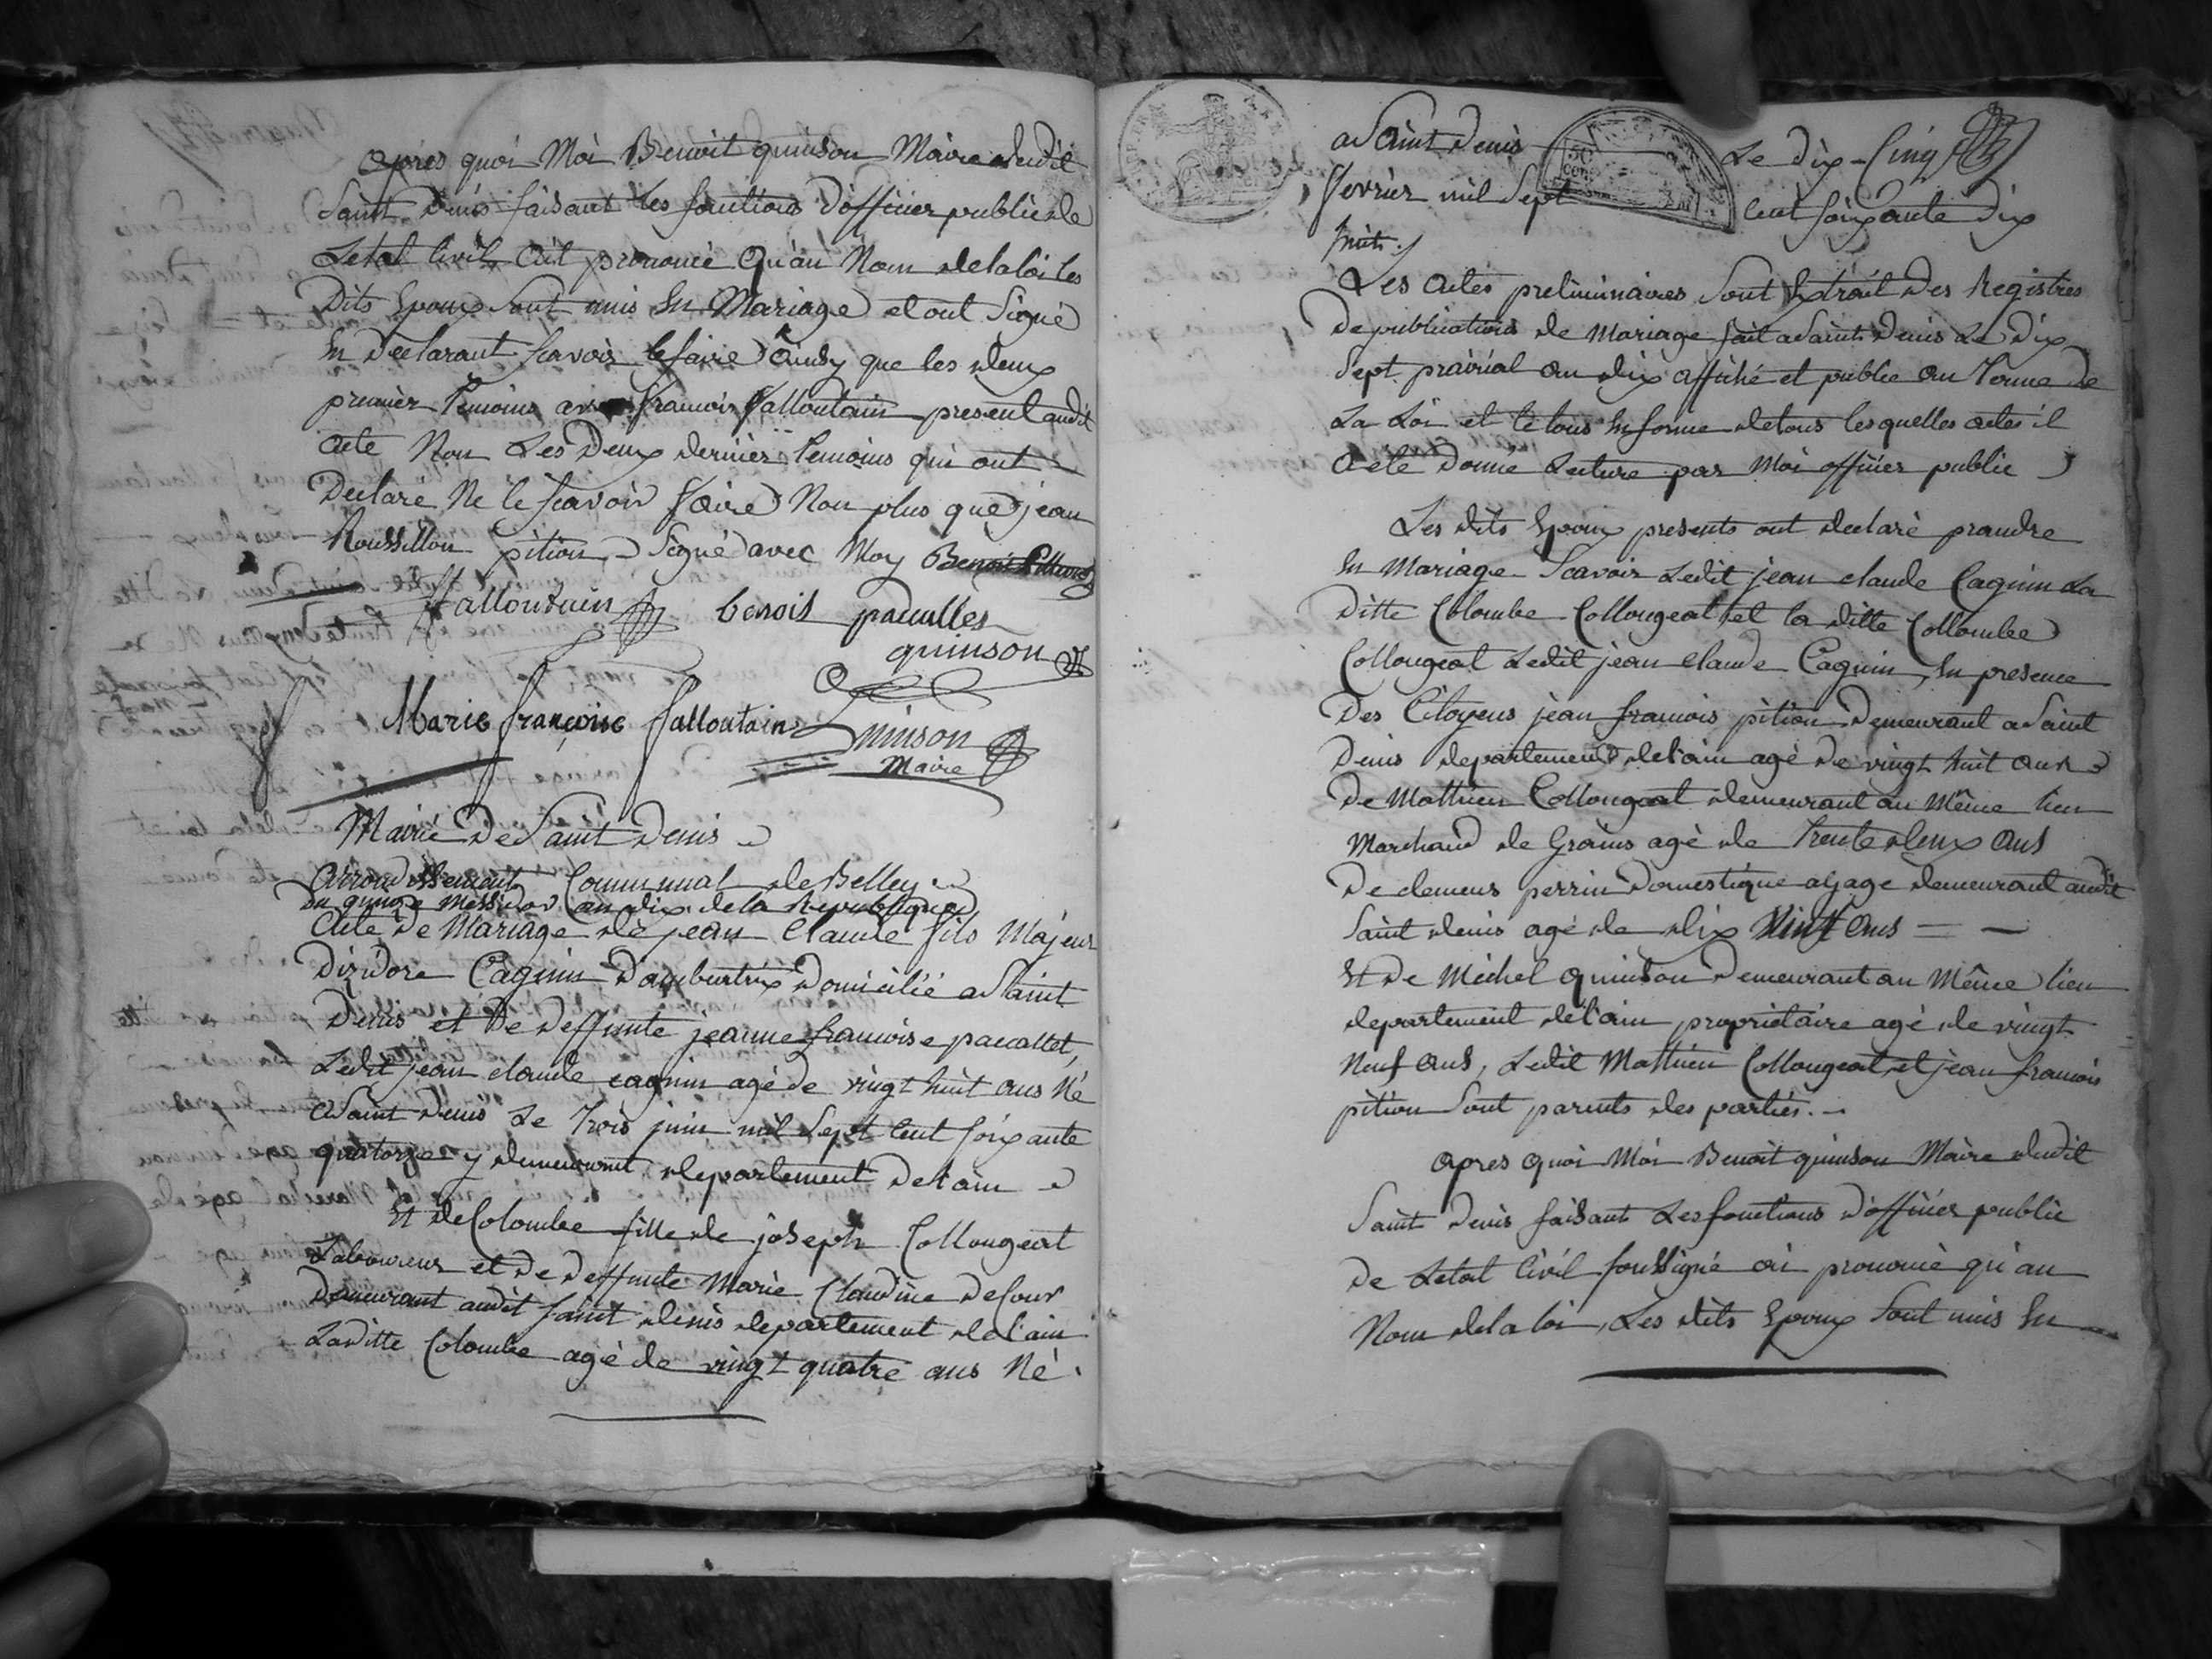 Apres quoi Moi Benoit quinson Maire dudit
Saint denis faisant les fonctions d'officier public de
Letat Civil ait prononcé Qu'au Nom de la loi les
Dits Epoux Sont unis En Mariage et ont Signé
En Declarant Scavoir le faire Ainsy que les deux
premier Temoins avec francois falloutain present audit
acte Non Les Deux dernier Temoins qui ont
Declaré Ne le scavoir faire Non plus que jean
Roussillon pition Signé avec Moy
falloutain benoit pacalles
quinson
Marie françoise falloutain Quinson
Maire
Mairie De Saint Denis
Arrondissement Communal de Belley
Du quinze Messidor an dix de la Republique
Acte De Mariage de jean Claude fils Majeur
D'izidore Cagnin D'ambutrix Domicilié a Saint
Denis et De deffunte jeanne francoise pacallet,
Ledit jean claude cagnin agé de vingt huit ans Né
a Saint Denis Le Trois juin mil Sept Cent soixante
quatorze y demeurant departement De lain
Et de Colombe fille de joseph Collougeat
Laboureur et De deffunte Marie Claudine Decour
Demeurant audit saint denis departement de l'ain
Laditte Colombe agé de vingt quatre ans Né
a Saint Denis Le Dix-Cinq
fevrier mil Sept Cent soixante Dix
huit.
Les actes preliminaires Sont Extrait Des Registres
De publications de Mariage fait a Saint Denis Le Dix
Sept prairial an dix affiché et publie au Terme de
La Loi et le tous En forme de tous les quelles actes il
a été Donné Lecture par Moi officier public
Les dits Epoux presents ont declaré prandre
En Mariage Scavoir Ledit jean claude Cagnin La
Ditte Colombe Collougeat et la ditte Collombe
Collougeat Ledit jean claude Cagnin, En presence
Des Citoyens jean francois pition Demeurant a Saint
Denis departement de l'ain agé De vingt huit ans
De Mathieu Collougeat demeurant au Même lieu
Marchand de Grains agé de Trente deux ans
De clemens perrin Domestique demeurant audit
Saint denis agé de dix Ans
Et De Michel Quinson Demeurant au Même lieu
departement de l'ain proprietaire agé de vingt
Neuf ans, Ledit Mathieu Collougeat et jean francois
pition Sont parents des parties.
Apres Quoi Moi Benoit quinson Maire dudit
Saint Denis faisant Les fonctions d'officier public
De Letat Civil soussigné ai prononcé qu'au
Nom de la loi, Les dits Epoux Sont unis En